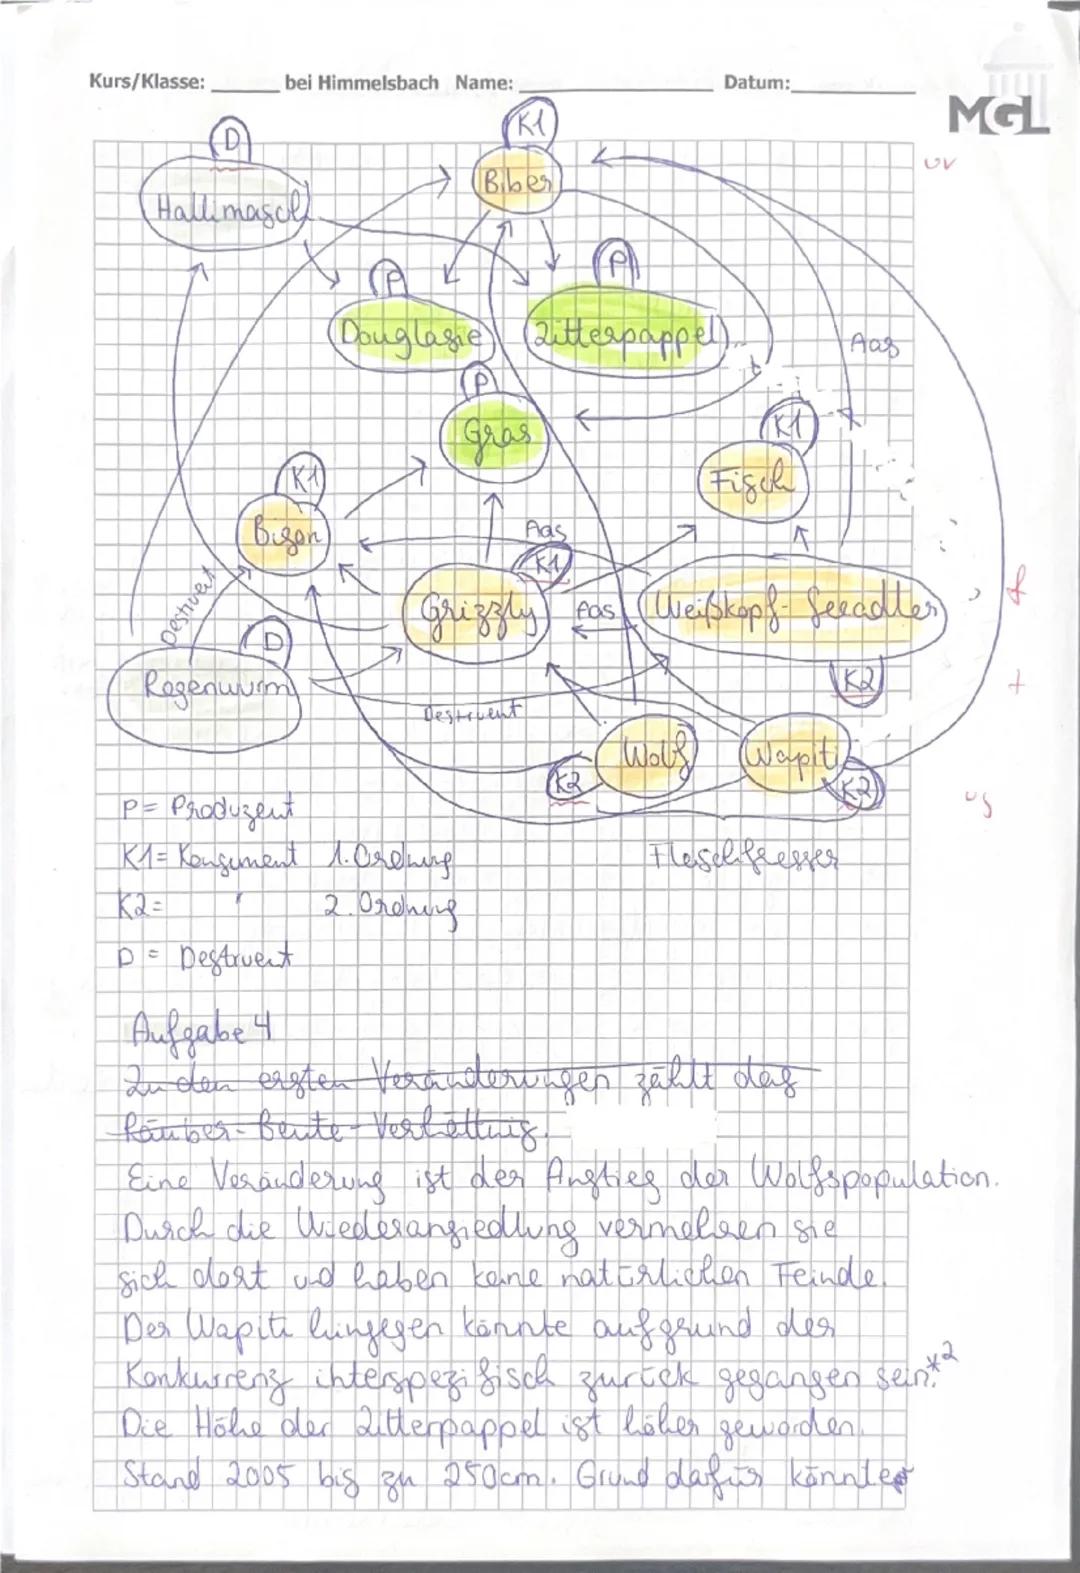 Kurs/Klasse: ______ bei Himmelsbach Name: ______ Datum: ______
MGL
D
K1
Biber
Hallimasch
P
P
Douglasie
Zitterpappel
Aas
P
Gras
K1
K1
Fisch
Bison
Aas
K1
Destruent
Grizzly
Aas
Weißkopf-Seeadler
D
Regenwurm
K2
Destruent
Wolf
Wapiti
K2
K2
P = Produzent
K1 = Konsument 1. Ordnung
Fleschfresser
K2 = " 2. Ordnung
D = Destruent
Aufgabe 4
Zu den ersten Veränderungen zählt das
Räuber-Beute-Verhältnis.
Eine Veränderung ist der Anstieg der Wolfspopulation.
Durch die Wiederansiedlung vermehren sie
sich dort und haben keine natürlichen Feinde.
Der Wapiti hingegen könnte aufgrund der
Konkurrenz interspezifisch zurück gegangen sein.*2
Die Höhe der Zitterpappel ist höher geworden.
Stand 2005 bis zu 250cm. Grund dafür könnte